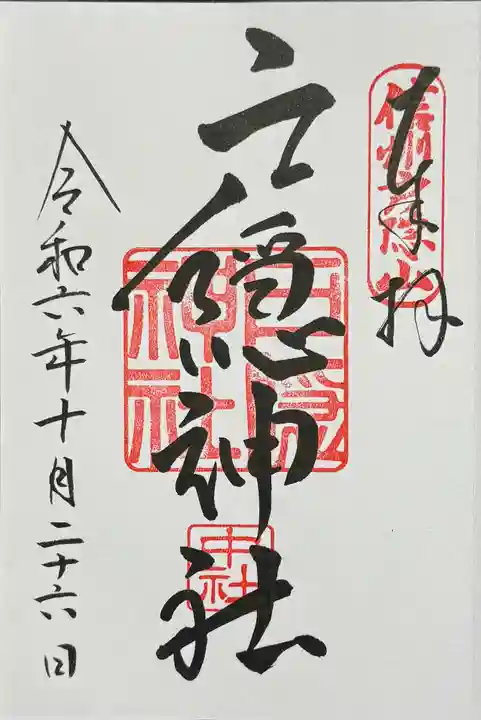 奉拝
信州戸隠山
戸隠神社
戸隠神社
中社
令和六年十月二十六日